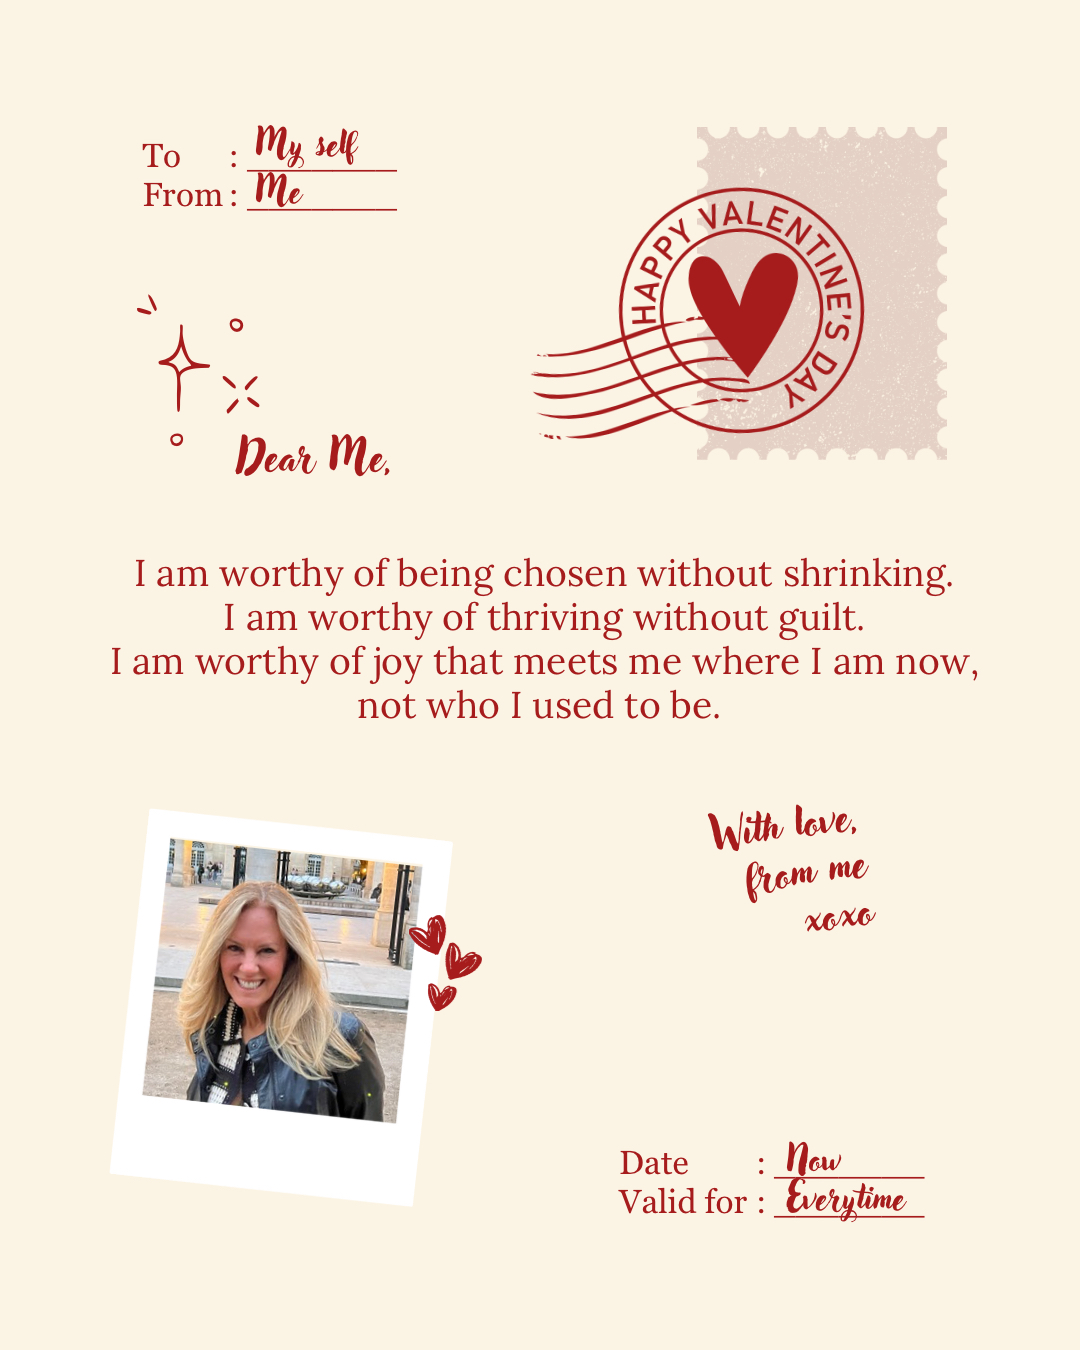 To : My self
From : Me
HAPPY VALENTINE'S DAY
Dear Me,
I am worthy of being chosen without shrinking.
I am worthy of thriving without guilt.
I am worthy of joy that meets me where I am now,
not who I used to be.
With love,
from me
xoxo
Date : Now
Valid for : Everytime